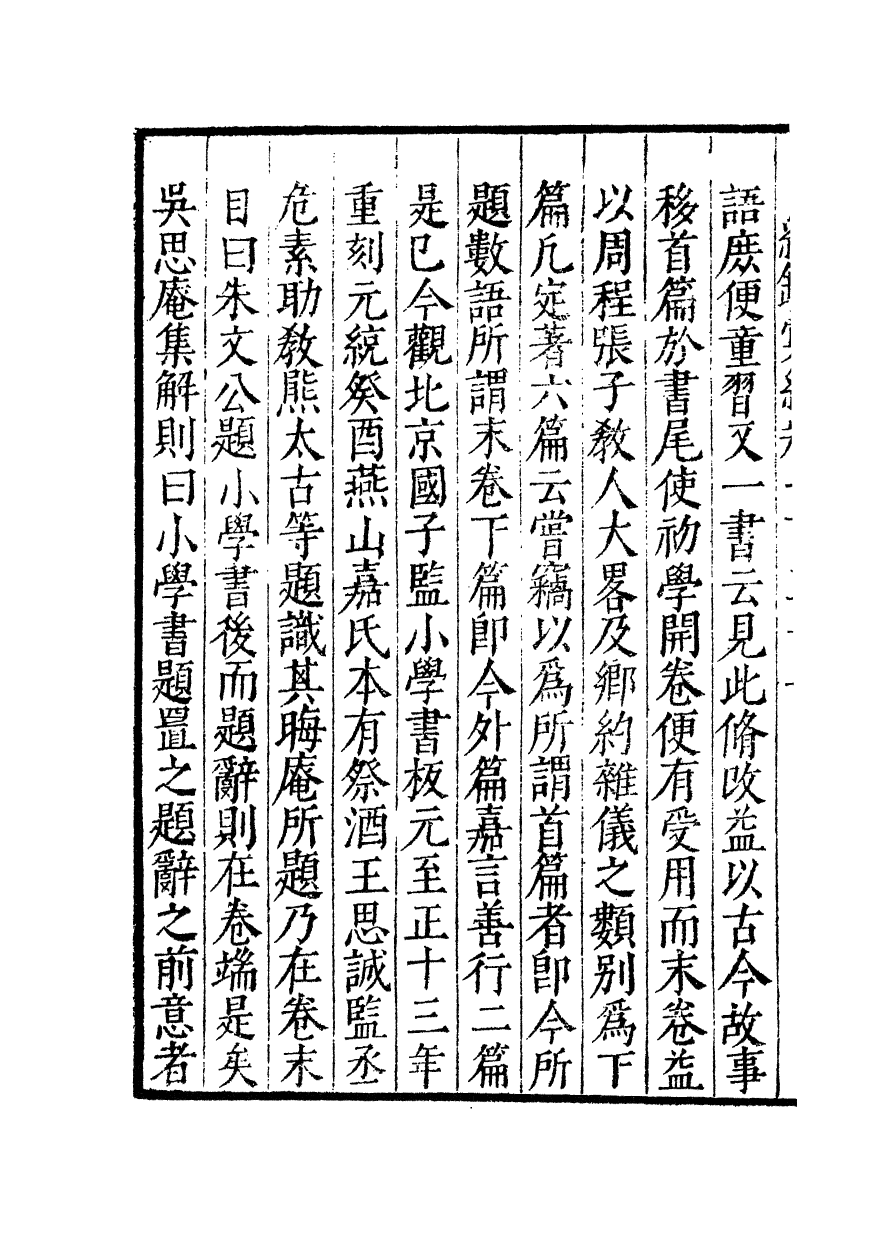 語庶便童習又一書云見此脩改益以古今故事
移首篇於書尾使初學開卷便有受用而末卷益
以周程張子教人大畧及鄉約雜儀之類别爲下
篇凡定著六篇云嘗竊以爲所謂首篇者卽今所
題數語所謂末卷下篇卽今外篇嘉言善行二篇
是已今觀北京國子監小學書板元至正十三年
重刻元統癸酉燕山嘉氏本有祭酒王思誠監丞
危素助教熊太古等題識其晦庵所題乃在卷末
目曰朱文公題小學書後而題辭則在卷端是矣
吳思庵集解則曰小學書題置之題辭之前意者